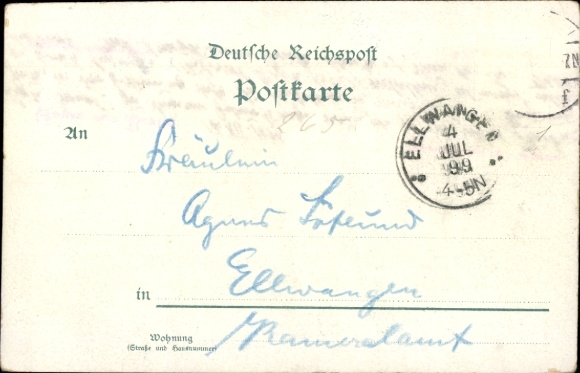 Deutsche Reichspost
Postkarte
An
Fräulein
Agnes
in Ellwangen
Kameralamt
Wohnung
(Straße und Hausnummer)
ELLWANGEN
4
JUL
99
4-5N
265
1